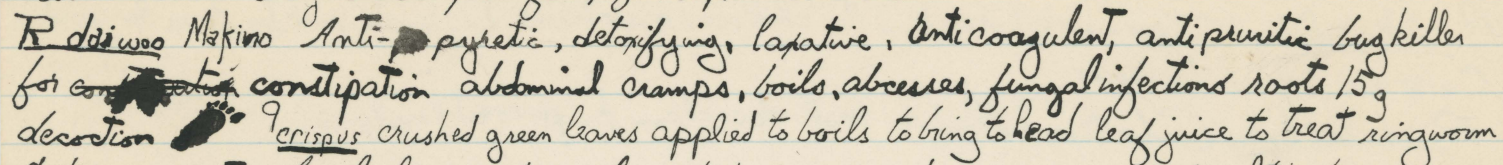 R daiwoo Makino Anti-pyretic, detoxifying, laxative, Anticoagulent, antipruritic bug killer
for constipation abdominal cramps, boils, abcesses, fungal infections roots 15g
decoction crispus crushed green leaves applied to boils to bring to head leaf juice to treat ringworm